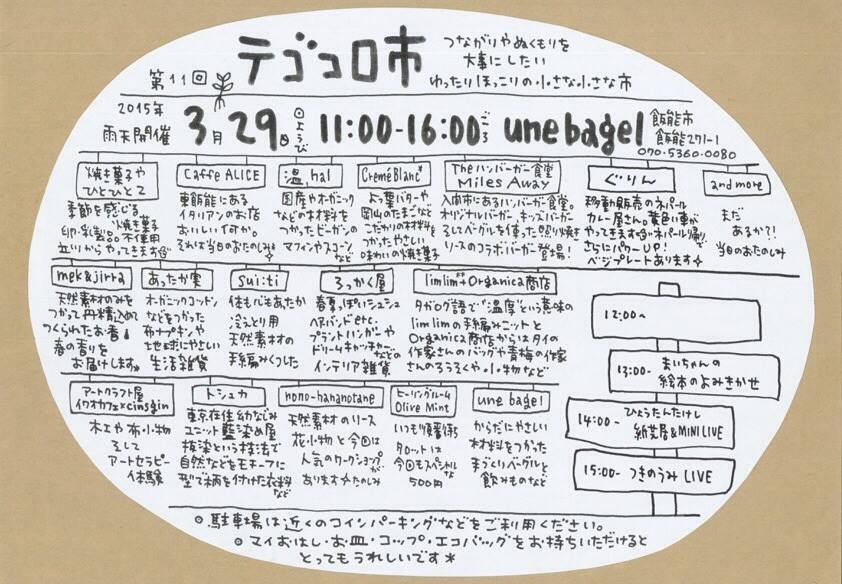 第11回 テゴコロ市
つながりやぬくもりを
大事にしたい
ゆったりほっこりの小さな小さな市
2015年
雨天開催
3月29日 日ようび 11:00-16:00ごろ une bagel
飯能市
飯能271-1
070-5360-0080
焼き菓子や
ひとひとて
季節を感じる
焼き菓子
卵・乳製品不使用
立川からやってきます
Caffe ALICE
東飯能にある
イタリアンのお店
おいしい何か。
それは当日のおたのしみ
温.hal
国産やオーガニック
などの材料を
つかったビーガンの
マフィンやスコーン
など
Creme Blanc
よつ葉バターや
岡山のたまごなど
こだわりの材料を
つかったやさしい
味わいの焼き菓子
Theハンバーガー食堂
Miles Away
入間市にあるハンバーガー食堂。
オリジナルバーガー、キッズバーガー
そしてベーグルを使った照り焼き
ソースのコラボバーガー登場!
ぐりん
移動販売のネパール
カレー屋さん。黄色い車が
やってきます ネパール帰りで
さらにパワーUP!
ベジプレートあります
and more
まだ
あるか?!
当日のおたのしみ
mek&jirra
天然素材のみを
つかって丹精込めて
つくられたお香
春の香りを
お届けします*
あったか実
オーガニックコットン
などをつかった
布ナプキンや
地球にやさしい
生活雑貨
sui:ti
体も心もあたたか
冷えとり用
天然素材の
手編みくつした
ろっかく屋
春夏っぽいシュシュ
ヘアバンドetc.
プラントハンガーや
ドリームキャッチャー
などの
インテリア雑貨
limlim+Organica商店
タガログ語で"温厚"という意味の
limlimの手編みニットと
Organica商店からはタイの
作家さんのバッグや青梅の作家
さんのろうそくや小物など
12:00~
13:00- まいちゃんの
絵本のよみきかせ
14:00- ひょうたんたけし
紙芝居&MINI LIVE
15:00- つきのうみ LIVE
アートクラフト屋
イワオカフェ×cinsgin
木工や布小物
そして
アートセラピー
体験
トシュカ
東京在住幼なじみ
ユニット藍染め屋
抜染という技法で
自然などをモチーフに
型で柄を付けた衣料
など
nono-hananotane
天然素材のリース
花小物と今回は
人気のワークショップが
あります おたのしみ
ヒーリングルーム
Olive Mint
いつも順番待ち
タロットは
今回もスペシャルな
500円
une bagel
からだにやさしい
材料をつかった
手づくりベーグルと
飲みものなど
◎駐車場は近くのコインパーキングなどをご利用ください。
◎マイおはし・お皿・コップ・エコバッグをお持ちいただけると
とってもうれしいです*